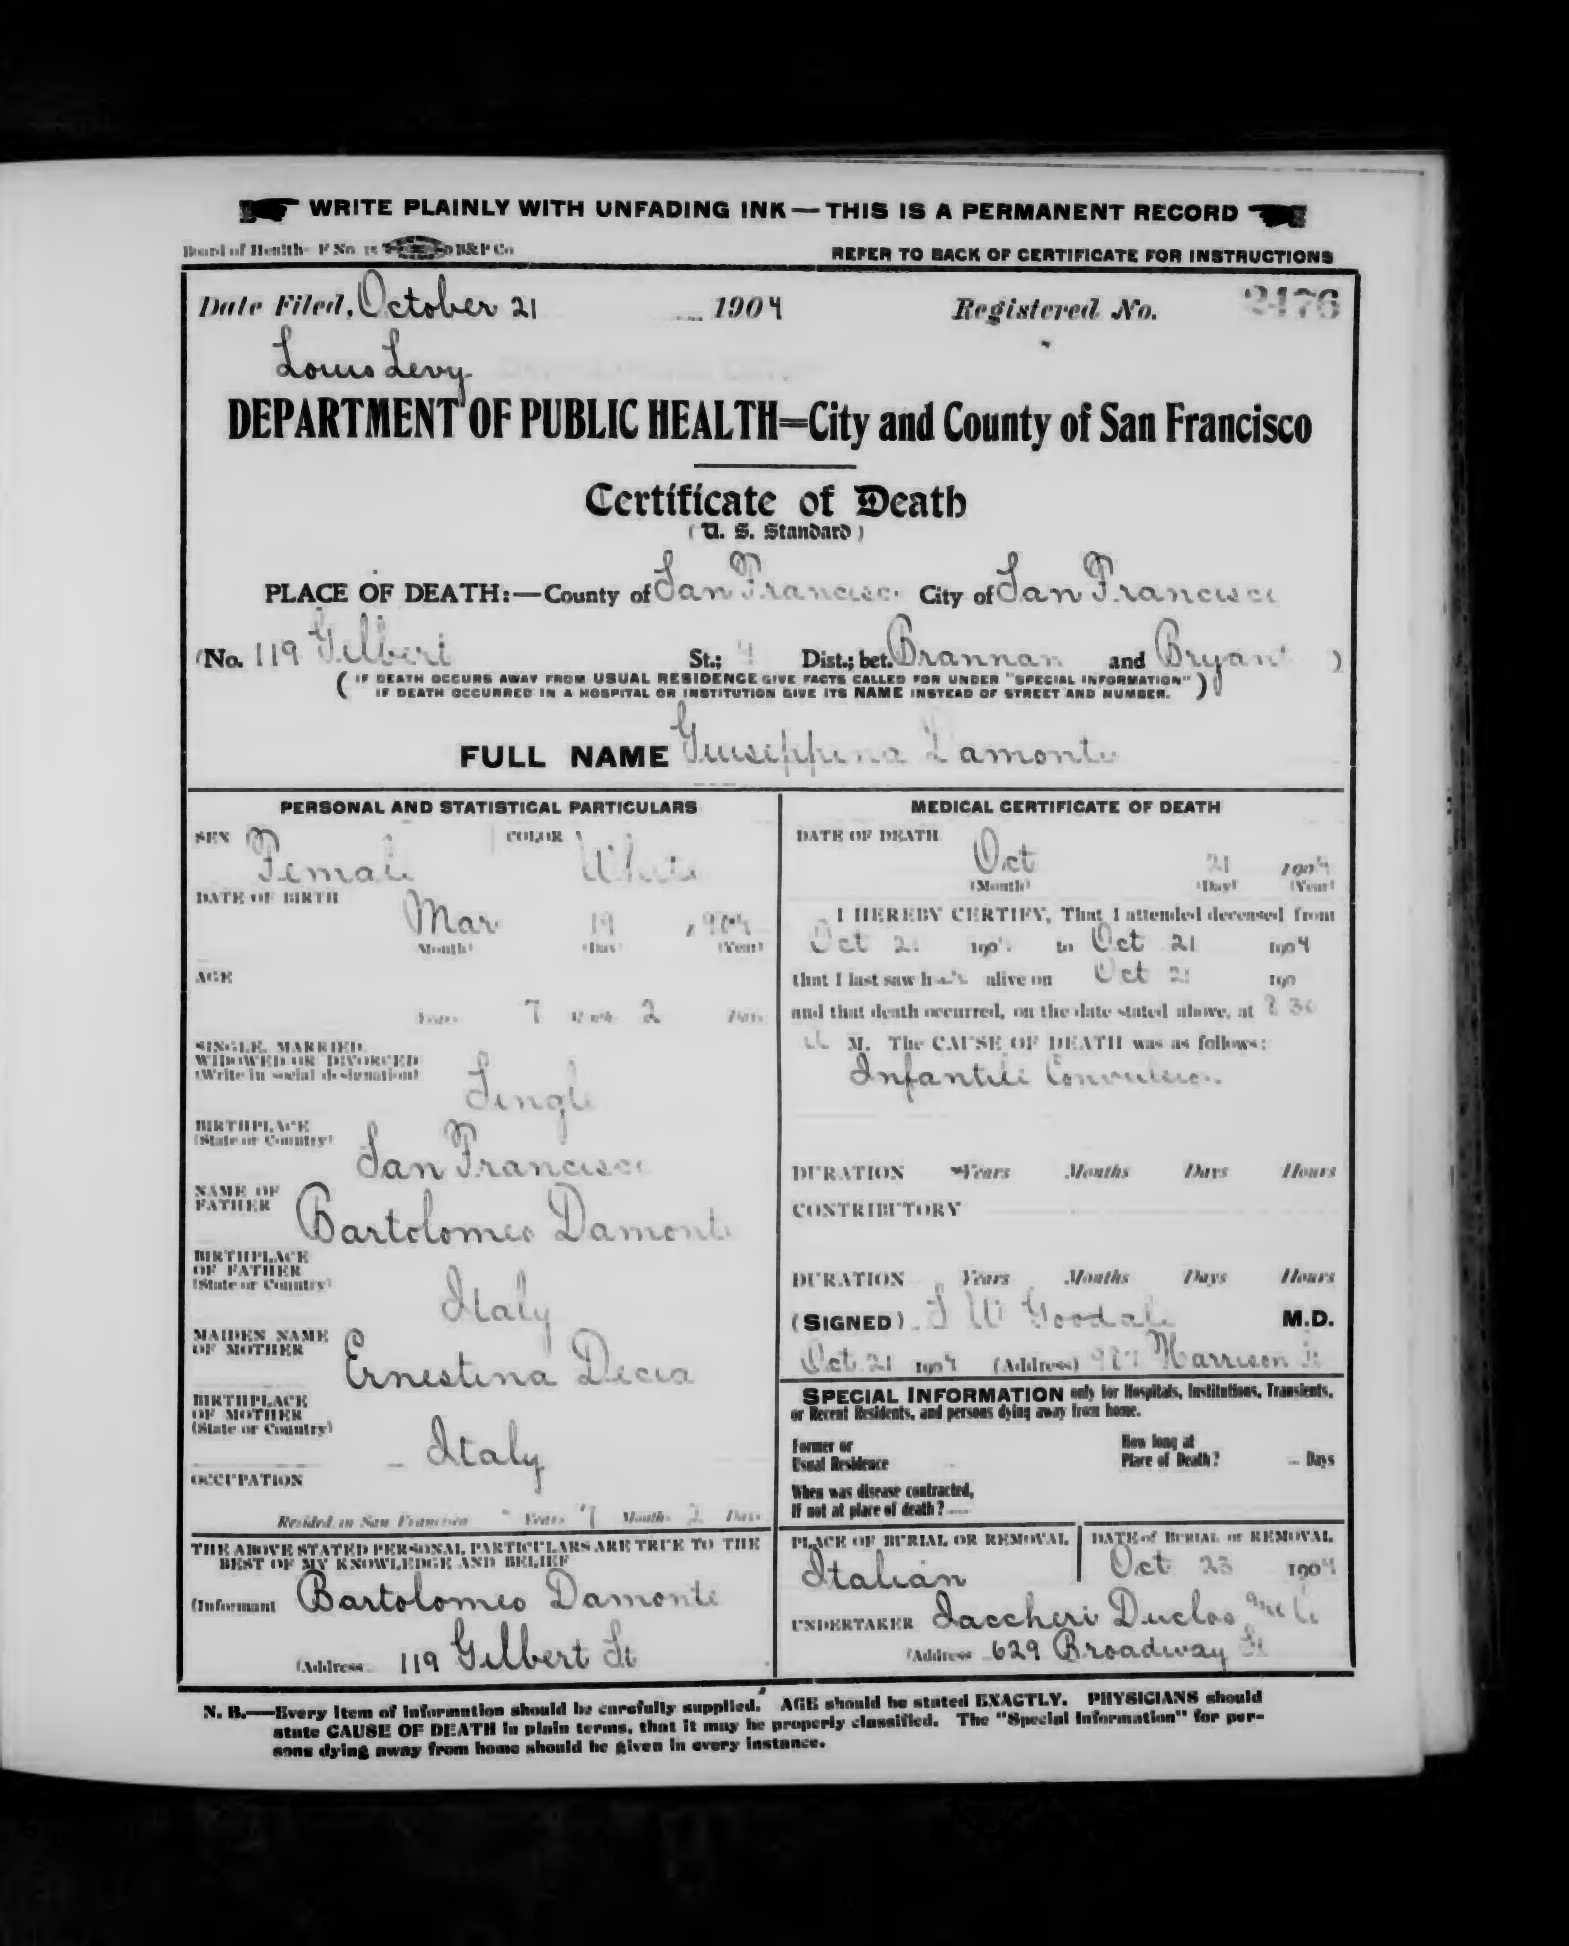 WRITE PLAINLY WITH UNFADING INK — THIS IS A PERMANENT RECORD
Board of Health F No. 15 B&P Co
REFER TO BACK OF CERTIFICATE FOR INSTRUCTIONS
Date Filed, October 21 1904 Registered No. 2476
Louis Levy
DEPARTMENT OF PUBLIC HEALTH=City and County of San Francisco
Certificate of Death
(U. S. Standard)
PLACE OF DEATH:—County of San Francisco City of San Francisco
(No. 119 Gilbert St.; 4 Dist.; bet. Brannan and Bryant )
( IF DEATH OCCURS AWAY FROM USUAL RESIDENCE GIVE FACTS CALLED FOR UNDER "SPECIAL INFORMATION"
IF DEATH OCCURRED IN A HOSPITAL OR INSTITUTION GIVE ITS NAME INSTEAD OF STREET AND NUMBER. )
FULL NAME Giuseppina Damonte
PERSONAL AND STATISTICAL PARTICULARS
SEX Female COLOR White
DATE OF BIRTH
Mar 19 1904
(Month) (Day) (Year)
AGE
Years 7 Months 2 Days
SINGLE, MARRIED,
WIDOWED OR DIVORCED
(Write in social designation)
Single
BIRTHPLACE
(State or Country)
San Francisco
NAME OF
FATHER
Bartolomeo Damonte
BIRTHPLACE
OF FATHER
(State or Country)
Italy
MAIDEN NAME
OF MOTHER
Ernestina Decia
BIRTHPLACE
OF MOTHER
(State or Country)
Italy
OCCUPATION
Resided in San Francisco - Years 7 Months 2 Days
THE ABOVE STATED PERSONAL PARTICULARS ARE TRUE TO THE
BEST OF MY KNOWLEDGE AND BELIEF
(Informant Bartolomeo Damonte
(Address 119 Gilbert St
MEDICAL CERTIFICATE OF DEATH
DATE OF DEATH
Oct 21 1904
(Month) (Day) (Year)
I HEREBY CERTIFY, That I attended deceased from
Oct 21 1904 to Oct 21 1904
that I last saw h alive on Oct 21 190
and that death occurred, on the date stated above, at 30
M. The CAUSE OF DEATH was as follows:
Infantile Convulsion
DURATION Years Months Days Hours
CONTRIBUTORY
DURATION Years Months Days Hours
(SIGNED) W Goodale M.D.
Oct 21 1904 (Address) Harrison St
SPECIAL INFORMATION only for Hospitals, Institutions, Transients,
or Recent Residents, and persons dying away from home.
Former or
Usual Residence
How long at
Place of Death? Days
When was disease contracted,
If not at place of death?
PLACE OF BURIAL OR REMOVAL
Italian
DATE of BURIAL or REMOVAL
Oct 23 1904
UNDERTAKER Iaccheri Duclos
(Address 629 Broadway St
N. B.—Every item of information should be carefully supplied. AGE should be stated EXACTLY. PHYSICIANS should
state CAUSE OF DEATH in plain terms, that it may be properly classified. The "Special Information" for per-
sons dying away from home should be given in every instance.